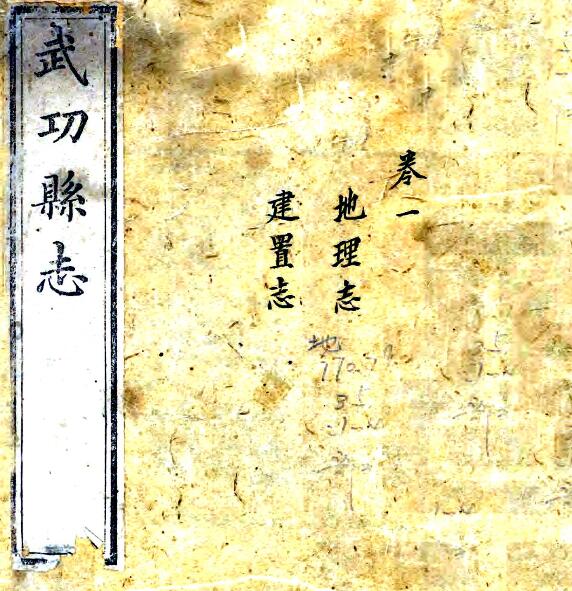 武功縣志
卷一
地理志
建置志
地